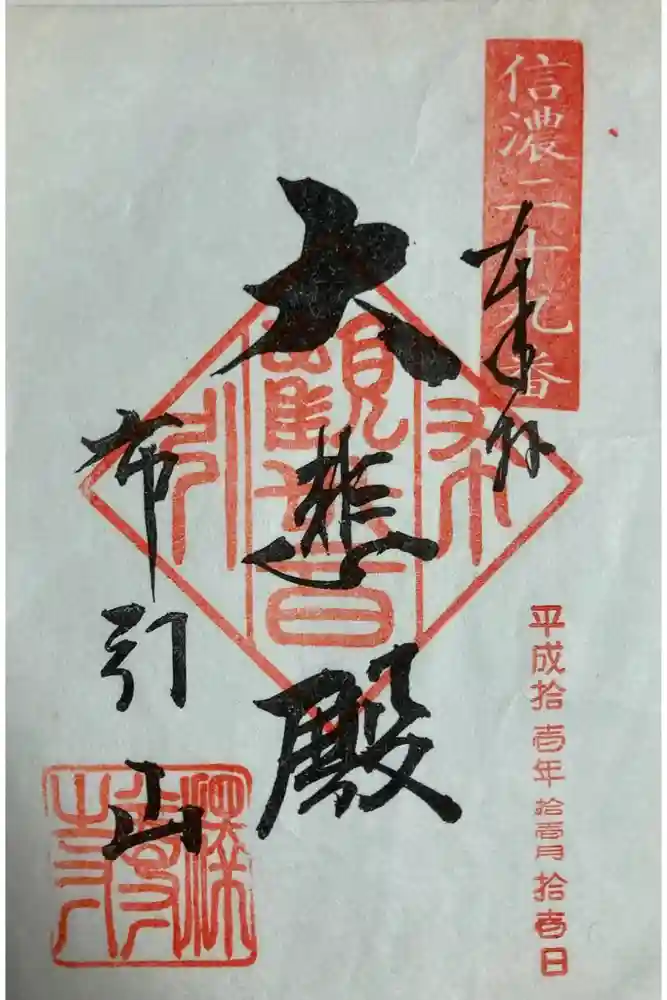 信濃二十九番
奉拝
平成拾壱年拾壱月拾壱日
大悲殿
布引
観世音
布引山